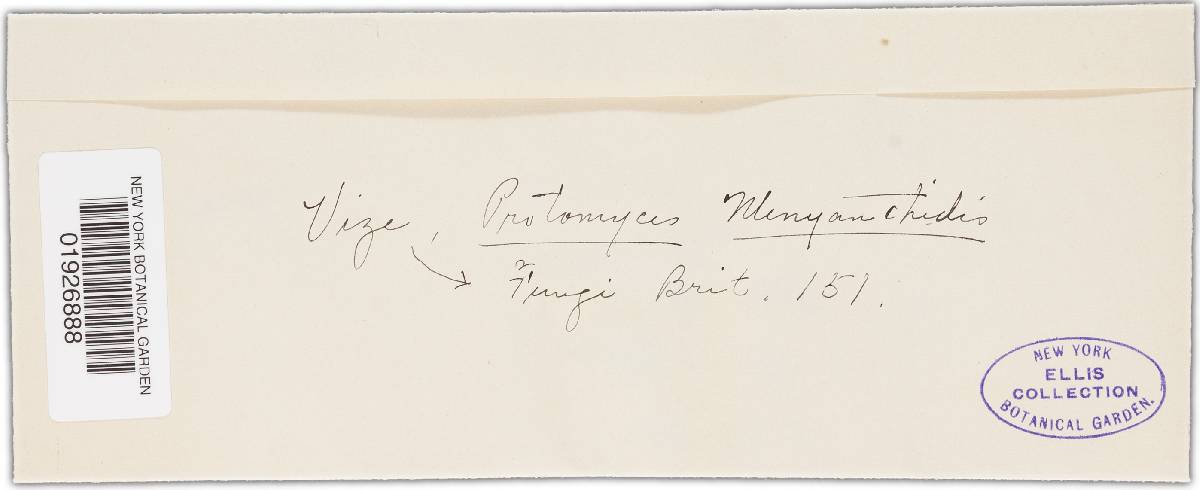 Vize, Protomyces Menyanthidis
Fungi Brit. 151.
NEW YORK BOTANICAL GARDEN
01926888
NEW YORK
ELLIS
COLLECTION
BOTANICAL GARDEN.